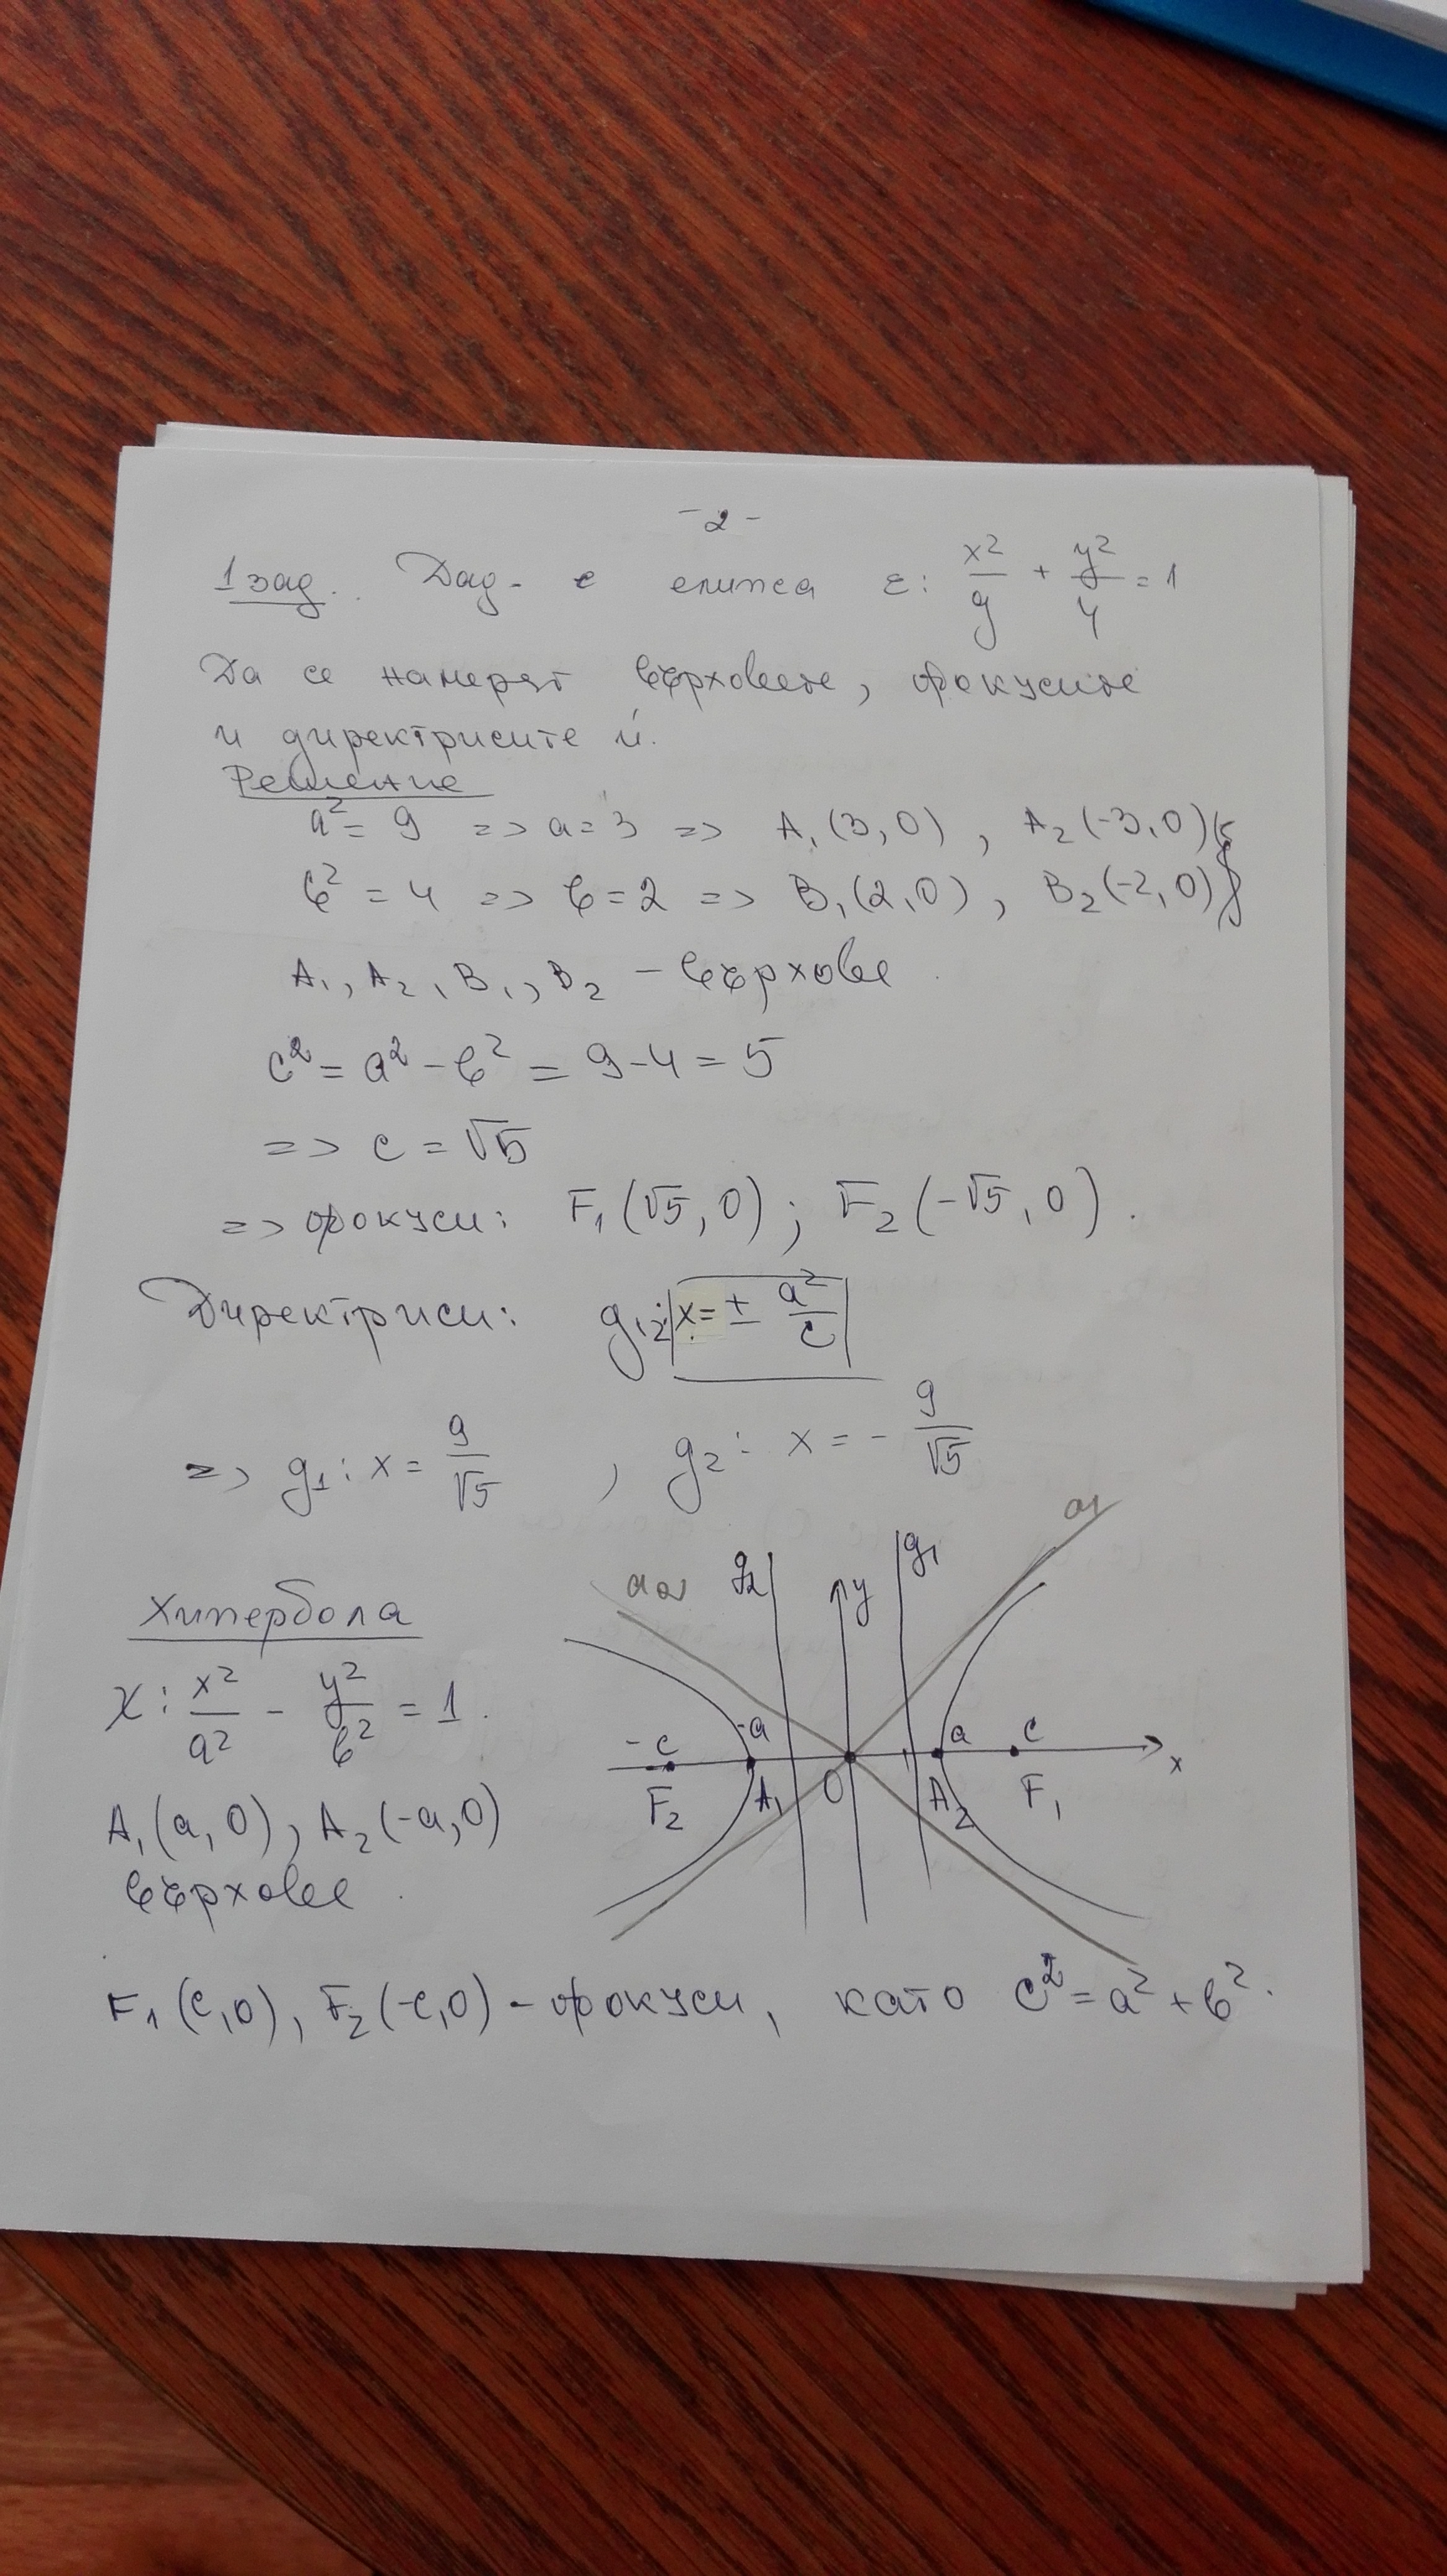 - 2 -
1 зад. Дад. е елипса ε: x²/9 + y²/4 = 1
Да се намерят върховете, фокусите
и директрисите ѝ.
Решение
a² = 9 => a = 3 => A₁(3,0), A₂(-3,0)
b² = 4 => b = 2 => B₁(2,0), B₂(-2,0)
A₁, A₂, B₁, B₂ – върхове
c² = a² - b² = 9 - 4 = 5
=> c = √5
=> фокуси: F₁(√5,0); F₂(-√5,0).
Директриси: g₁,₂: x = ± a²/c
=> g₁: x = 9/√5, g₂: x = - 9/√5
Хипербола
χ: x²/a² - y²/b² = 1.
A₁(a,0), A₂(-a,0)
върхове.
a₂ g₂ y g₁ a₁
-c -a a c
F₂ A₁ O A₂ F₁ x
F₁(c,0), F₂(-c,0) – фокуси, като c² = a² + b².